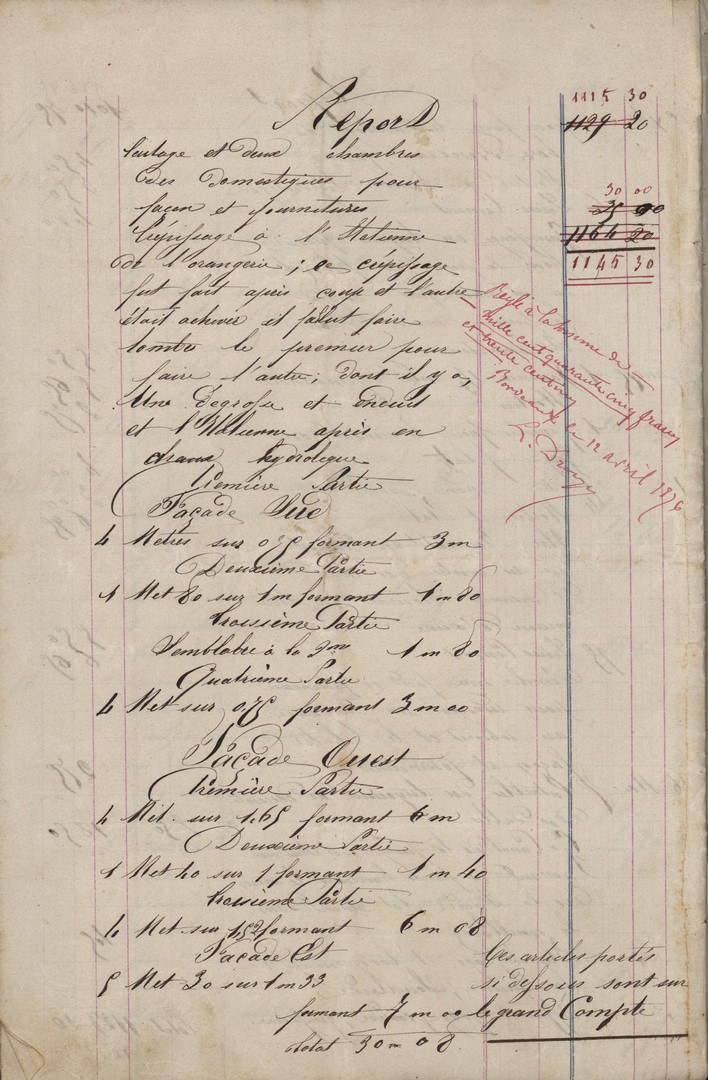 1115 30
Report 1129 20
et deux chambres
des domestiques pour 30 00
façon et fournitures 35 00
Crépissage à l'Italienne 1164 20
de l'orangerie; ce crépissage 1145 30
fut fait après coup et l'autre
était achever il falut faire
tombé le premier pour
faire l'autre; dont il y a,
Une Dégrosie et enduit
et l'Italienne après en
chaux hydrolique
Première Partie
Façade Sud
4 Metres sur 0,75 formant 3m
Deuxième Partie
1 Met 80 sur 1m formant 1m80
Troisième Partie
Semblable à la 2me 1m 80
Quatrième Partie
4 Met sur 0,75 formant 3m00
Façade Ouest
Première Partie
4 Mèt. sur 1,65 formant 6m
Deuxième Partie
1 Met 40 sur 1 formant 1m 40
Troisième Partie
4 Met sur 1,52 formant 6m08
Façade Est
5 Met 30 sur 1m33
formant 7m00
Total 30m08
Réglé à la somme de
Mille cent quarante cinq francs
et trente centimes
Bordeaux le 12 avril 1876
Ces articles portés
si dessous sont sur
le grand Compte